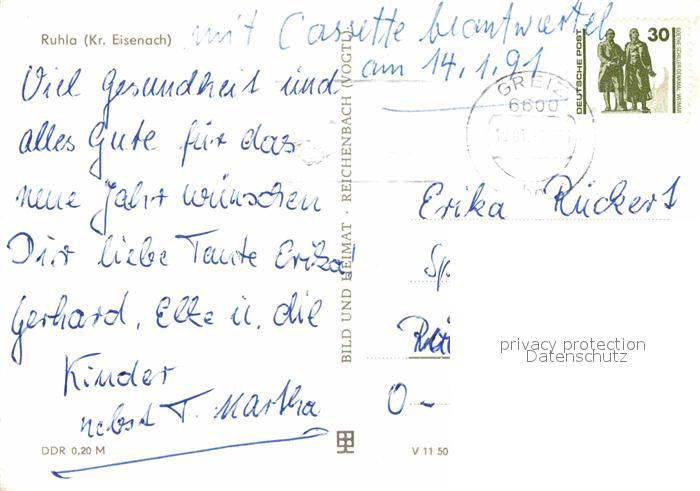 Ruhla (Kr. Eisenach)
mit Cassette beantwortet
am 14.1.91
Viel Gesundheit und
alles Gute für das
neue Jahr wünschen
Dir liebe Tante Erika!
Gerhard, Elke u. die
Kinder
nebst T. Martha
DDR 0,20 M
BILD UND HEIMAT · REICHENBACH (VOGTL)
V 11 50
DEUTSCHE POST
30
GOETHE-SCHILLER-DENKMAL WEIMAR
GREIZ
6600
Erika Rückert
Sp
O-
privacy protection
Datenschutz